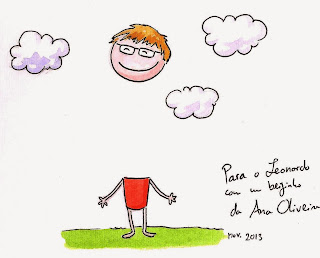 Para o Leonardo
com um beijinho
da Ana Oliveira
nov. 2013